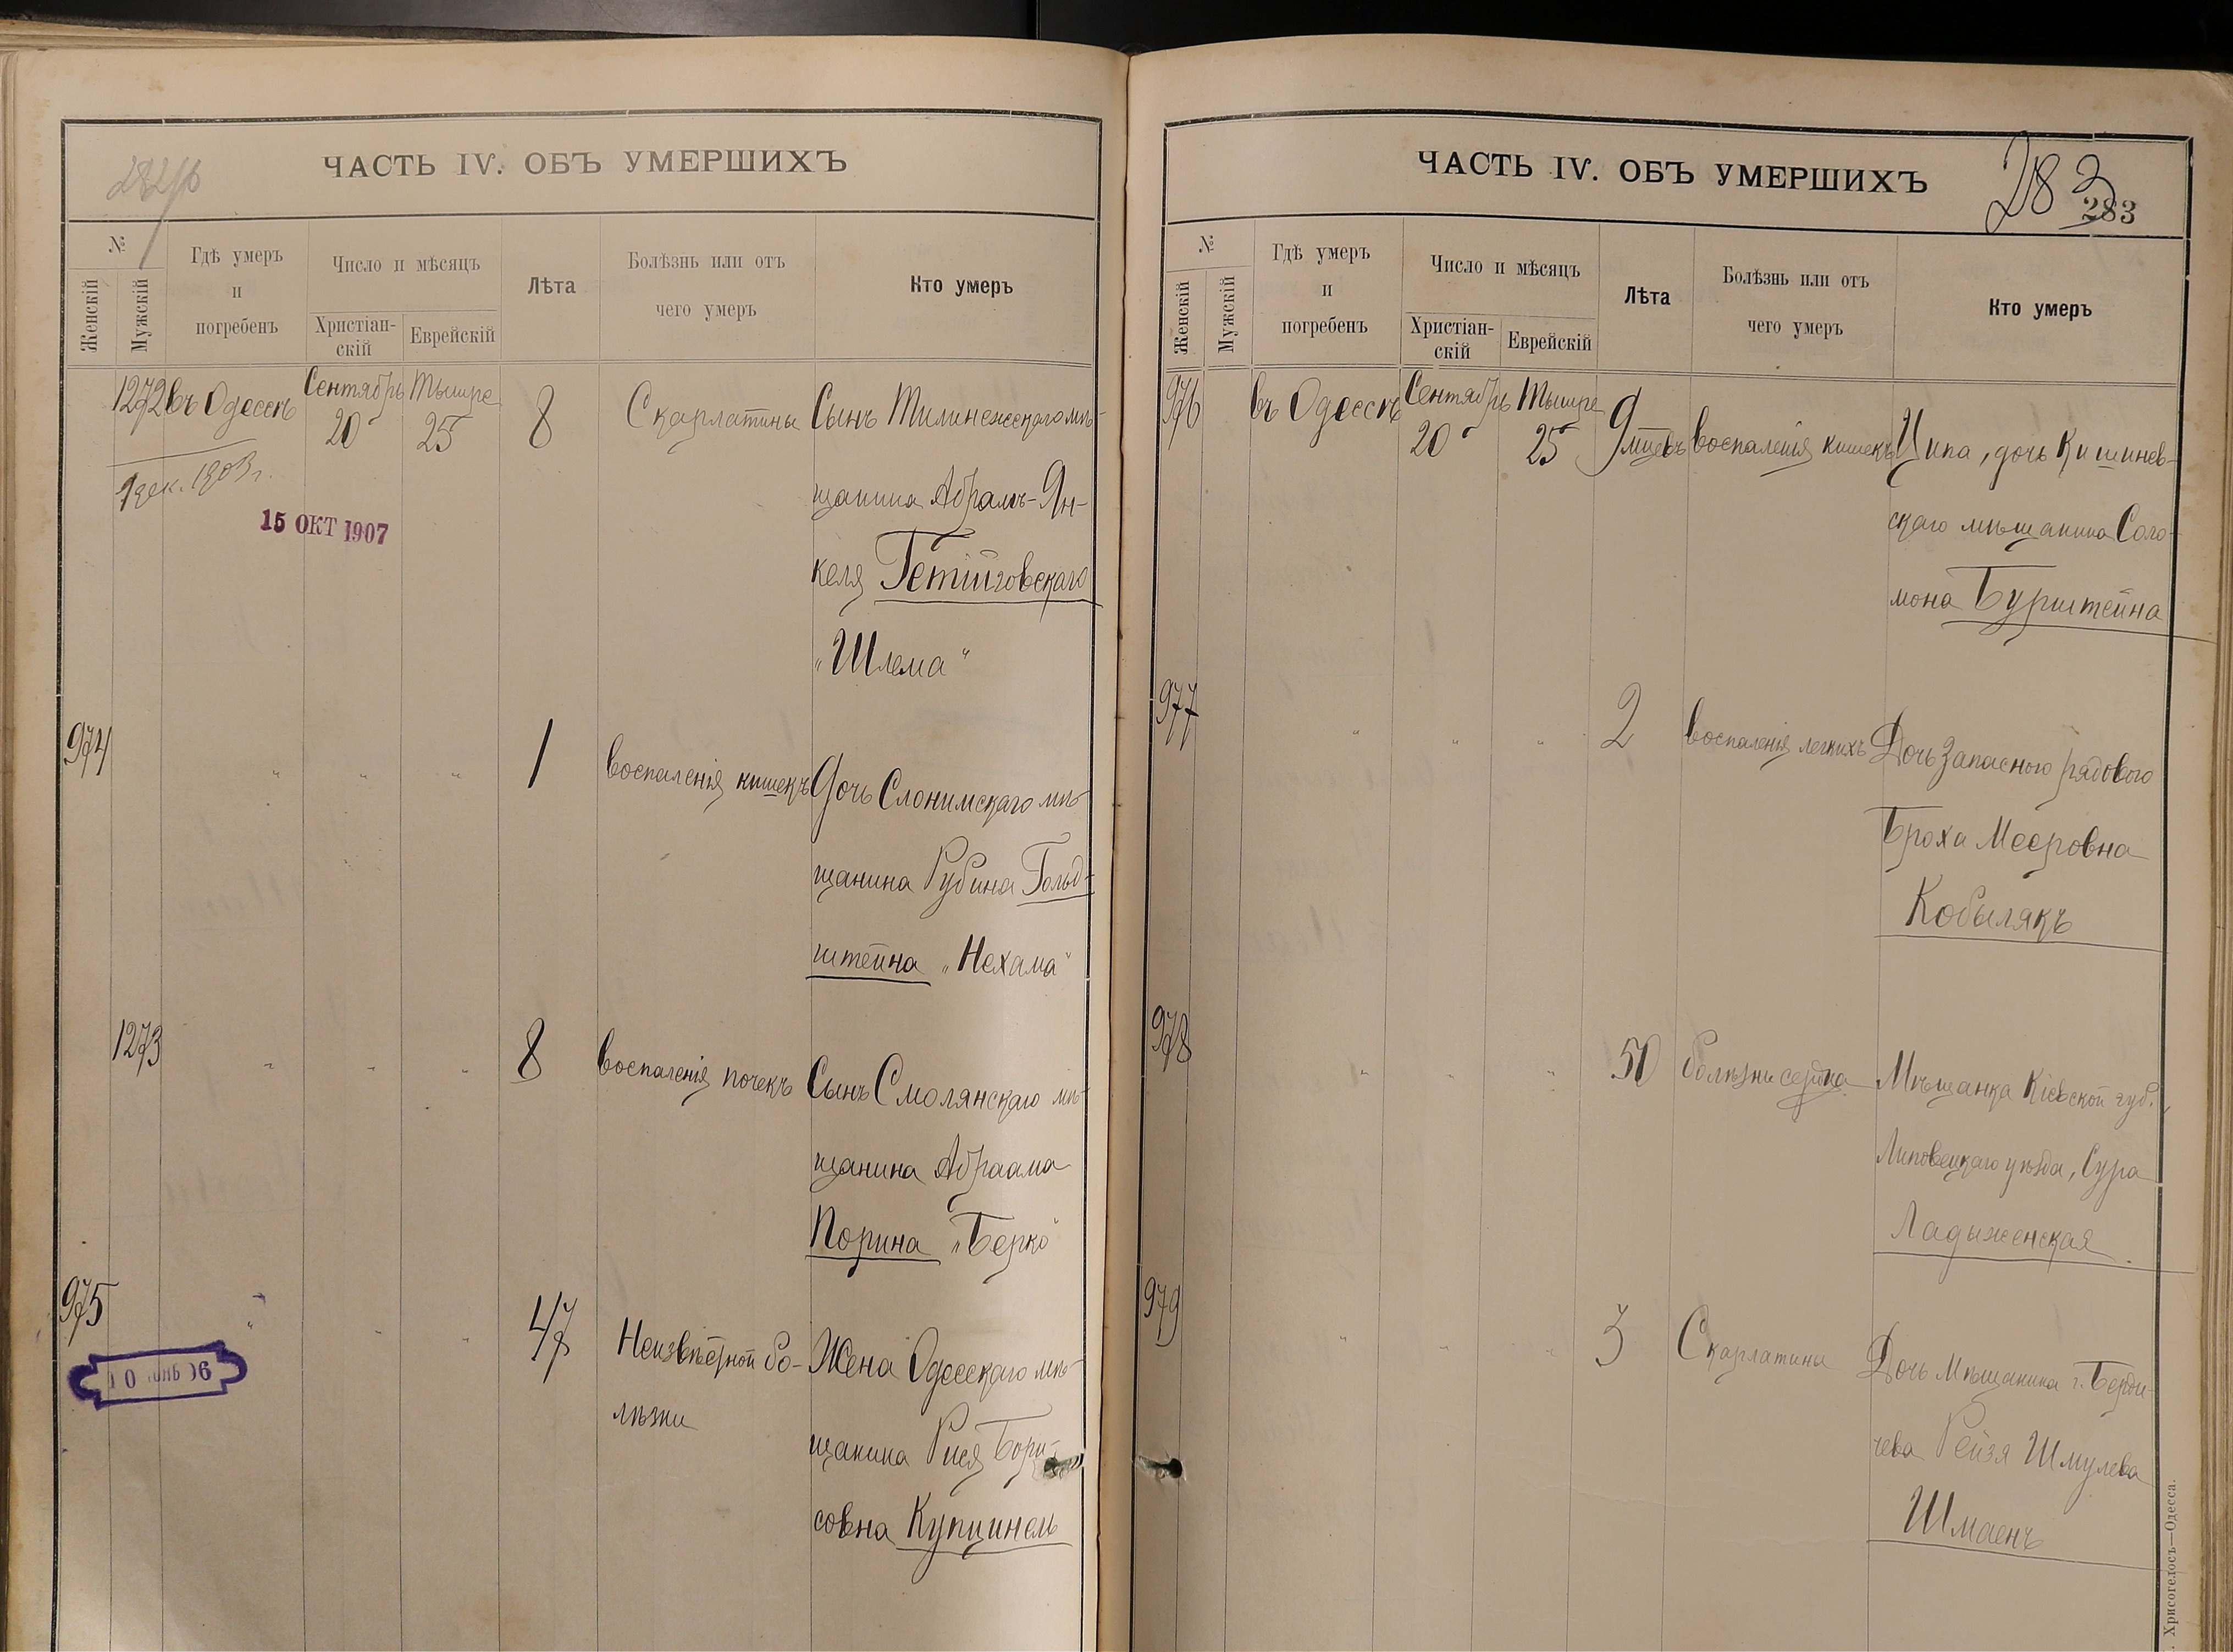 ЧАСТЬ IV. ОБЪ УМЕРШИХЪ
№
Женскій
Мужскій
Гдѣ умеръ
и
погребенъ
Число и мѣсяцъ
Христіан-
скій
Еврейскій
Лѣта
Болѣзнь или отъ
чего умеръ
Кто умеръ
1272 въ Одессѣ Сентябрь Тышре 8 Скарлатины Сынъ Тилинежскаго мѣ-
20 25
1 дек. 1903 г.
15 ОКТ 1907
щанина Абрамъ-Ян-
келя
"Шлема"
974 " " " 1 воспаленія кишекъ Дочь Слонимскаго мѣ-
щанина Рубина Гольд-
штейна "Нехама"
1273 " " " 8 воспаленія почекъ Сынъ Смолянскаго мѣ-
щанина Абраама
Порина "Берко"
975 " " " 47 Неизвѣстной бо- Жена Одесскаго мѣ-
лѣзни
щанина Рися Бори-
совна Купчинель
ЧАСТЬ IV. ОБЪ УМЕРШИХЪ
283
283
№
Женскій
Мужскій
Гдѣ умеръ
и
погребенъ
Число и мѣсяцъ
Христіан-
скій
Еврейскій
Лѣта
Болѣзнь или отъ
чего умеръ
Кто умеръ
976 въ Одессѣ Сентябрь Тышре 9 мѣцевъ воспаленія кишекъ Ципа, дочь Кишинев-
20 25
скаго мѣщанина Соло-
мона Бурштейна
977 " " " 2 воспаленія легкихъ Дочь Запасного рядового
Броха Мееровна
Кобылякъ
978 " " " 50 болѣзни сердца Мѣщанка Кіевской губ.
Липовецкаго уѣзда, Сура
Ладыженская
979 " " " 3 Скарлатина Дочь Мѣщанина г. Берди-
чева Рейзя Шмулева
Шмаенъ
Хрисогелосъ—Одесса.